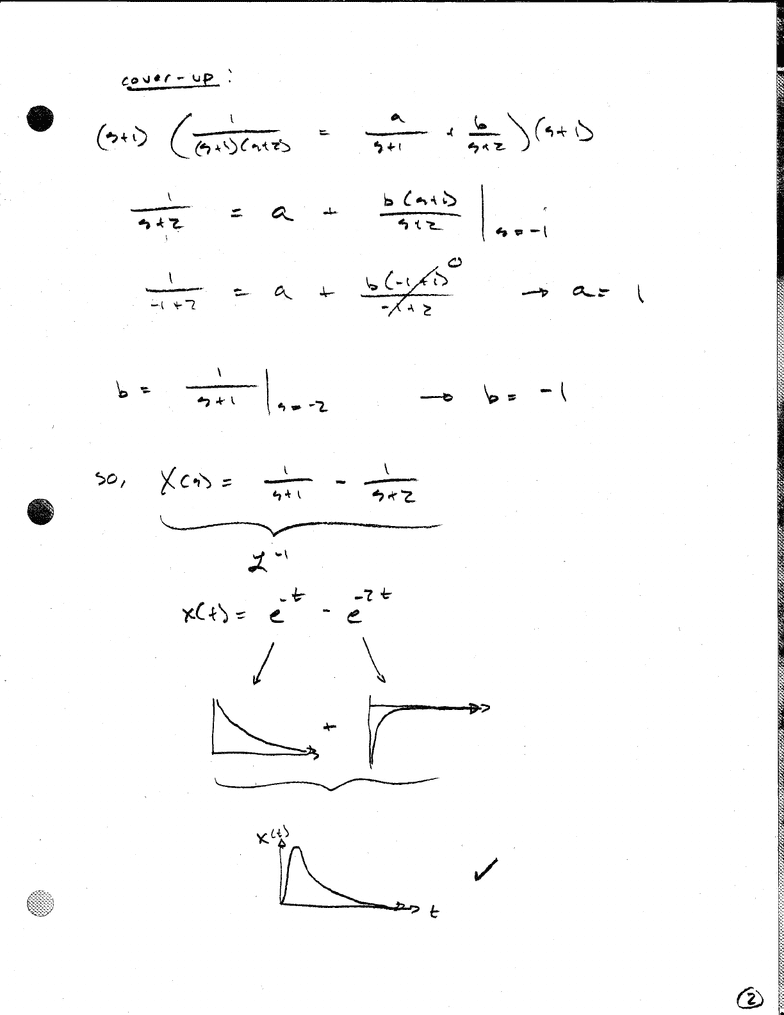 cover-up:
(s+1) ( 1/((s+1)(s+2)) = a/(s+1) + b/(s+2) ) (s+1)
1/(s+2) = a + b(s+1)/(s+2) | s=-1
1/(-1+2) = a + b(-1+1)/(-1+2) 0 → a = 1
b = 1/(s+1) | s=-2 → b = -1
so, X(s) = 1/(s+1) - 1/(s+2)
ℒ^-1
x(t) = e^-t - e^-2t
+
x(t)
t
2